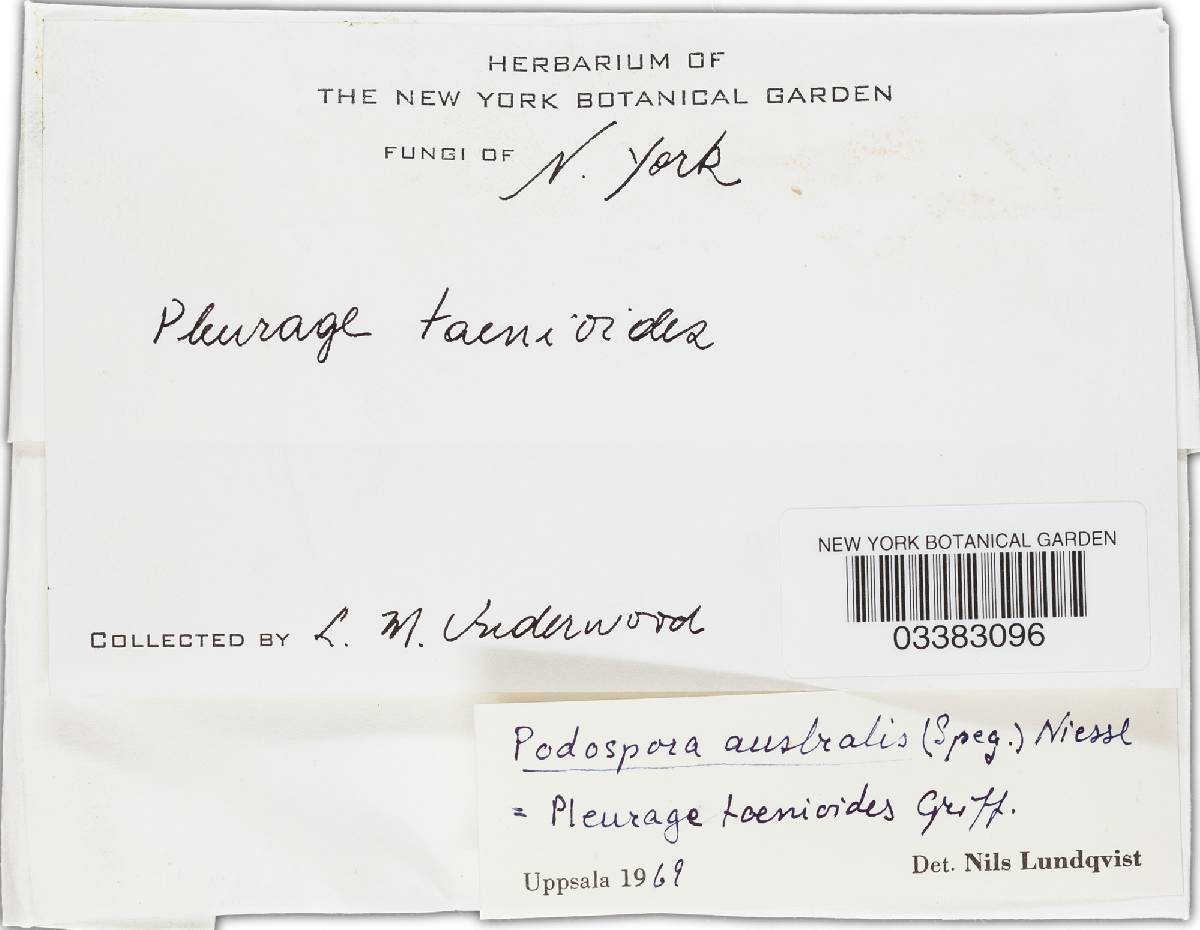 HERBARIUM OF
THE NEW YORK BOTANICAL GARDEN
FUNGI OF N. York
Pleurage taenioides
NEW YORK BOTANICAL GARDEN
03383096
COLLECTED BY L. M. Underwood
Podospora australis (Speg.) Niessl
= Pleurage taenioides Griff.
Uppsala 1969 Det. Nils Lundqvist